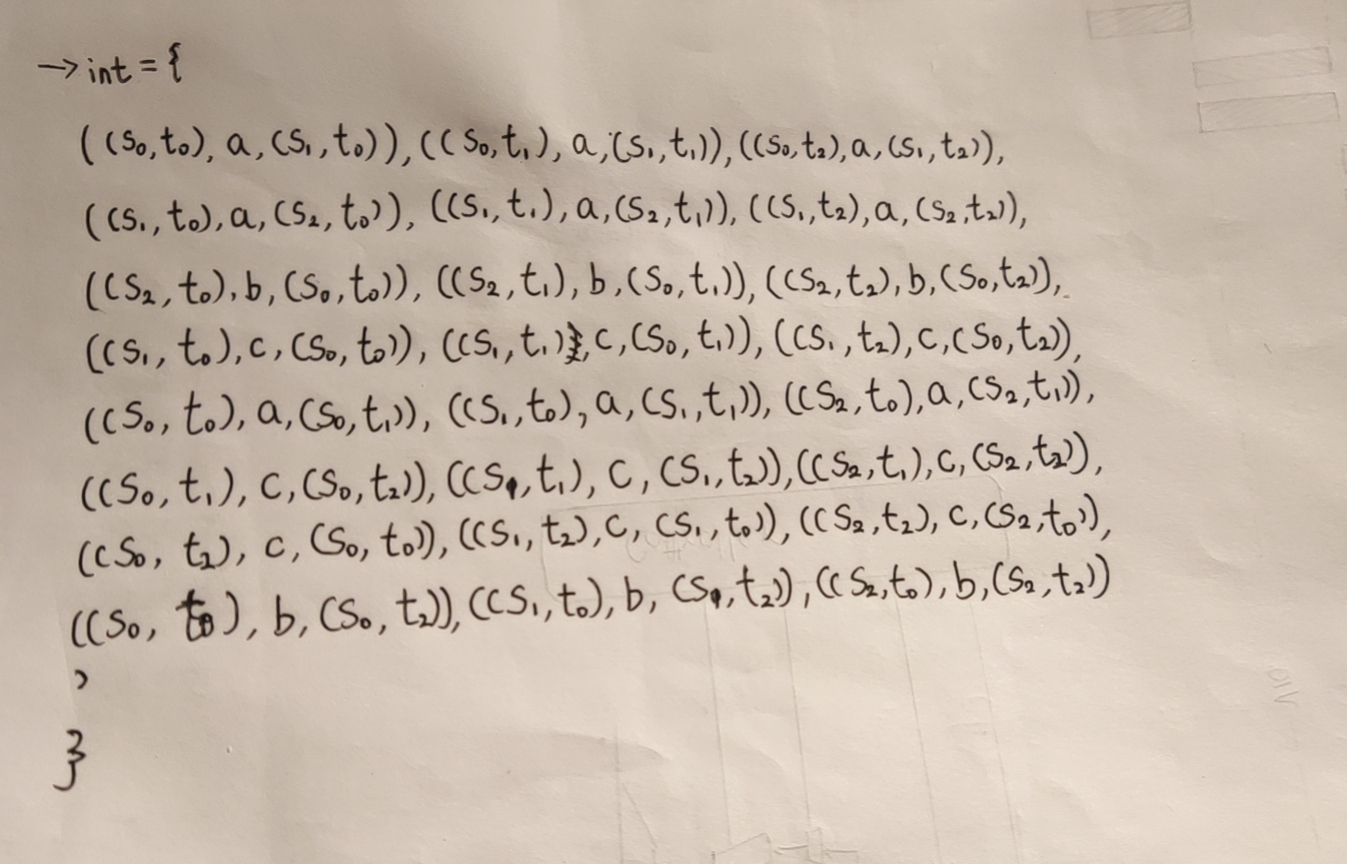 → int = {
((s₀,t₀), a, (s₁,t₀)), ((s₀,t₁), a, (s₁,t₁)), ((s₀,t₂), a, (s₁,t₂)),
((s₁,t₀), a, (s₂,t₀)), ((s₁,t₁), a, (s₂,t₁)), ((s₁,t₂), a, (s₂,t₂)),
((s₂,t₀), b, (s₀,t₀)), ((s₂,t₁), b, (s₀,t₁)), ((s₂,t₂), b, (s₀,t₂)),
((s₁,t₀), c, (s₀,t₀)), ((s₁,t₁), c, (s₀,t₁)), ((s₁,t₂), c, (s₀,t₂)),
((s₀,t₀), a, (s₀,t₁)), ((s₁,t₀), a, (s₁,t₁)), ((s₂,t₀), a, (s₂,t₁)),
((s₀,t₁), c, (s₀,t₂)), ((s₁,t₁), c, (s₁,t₂)), ((s₂,t₁), c, (s₂,t₂)),
((s₀,t₂), c, (s₀,t₀)), ((s₁,t₂), c, (s₁,t₀)), ((s₂,t₂), c, (s₂,t₀)),
((s₀,t₀), b, (s₀,t₂)), ((s₁,t₀), b, (s₁,t₂)), ((s₂,t₀), b, (s₂,t₂))
,
}